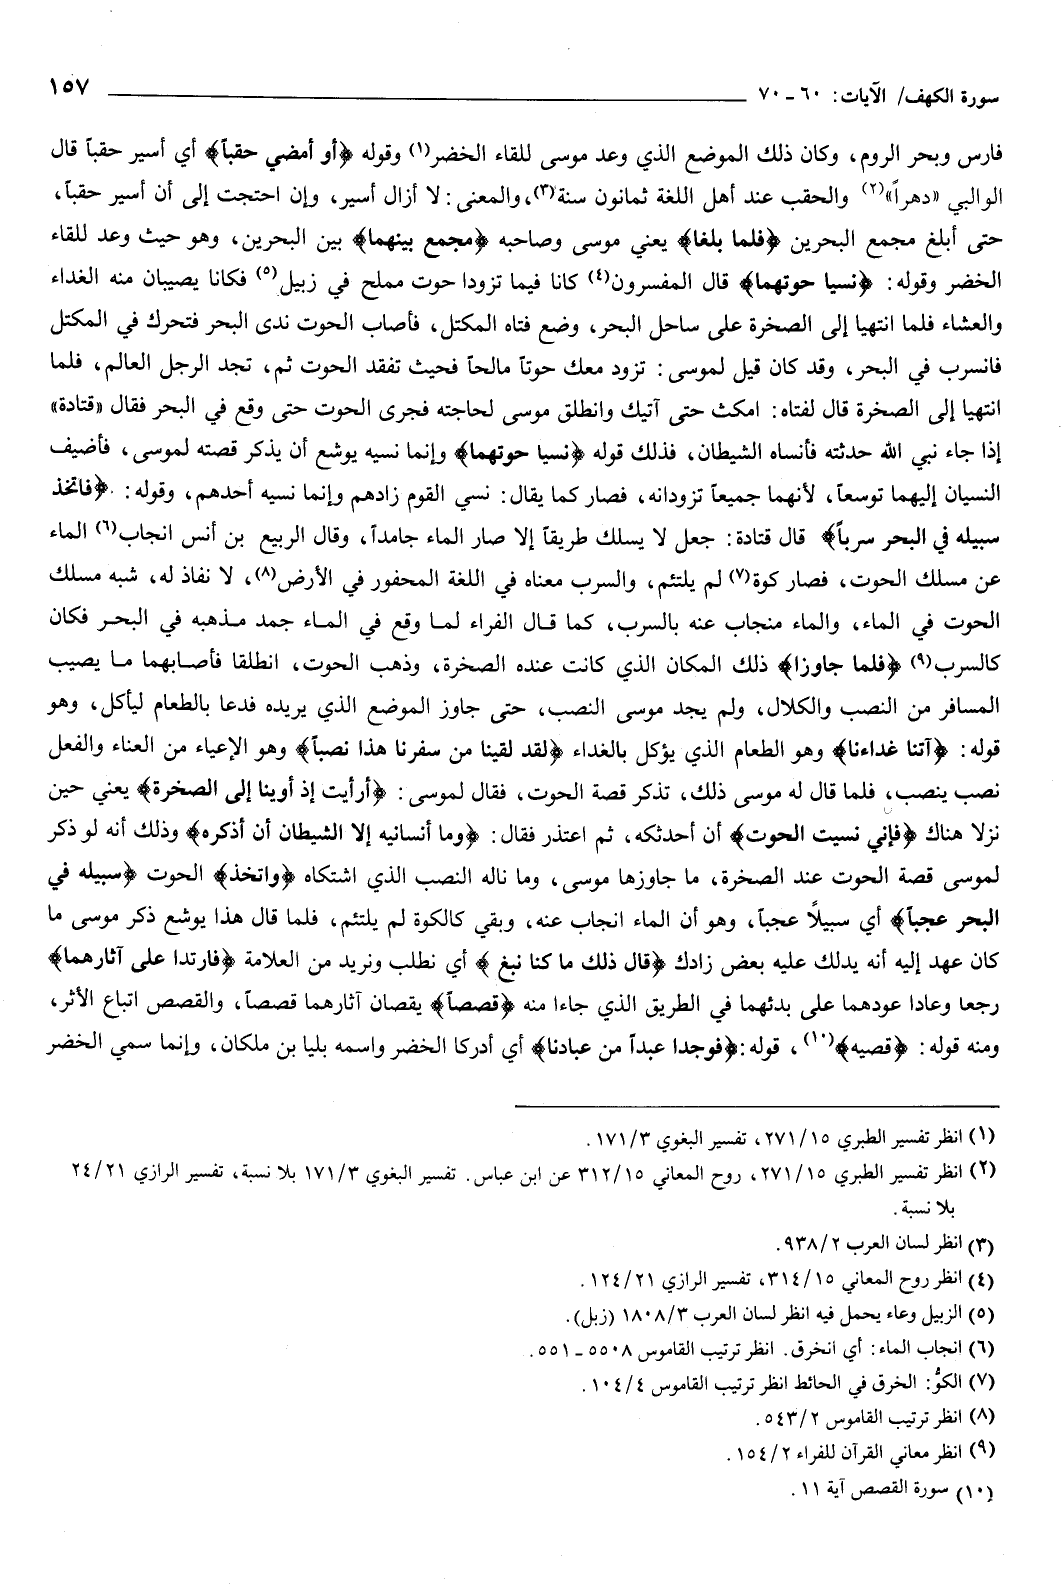 سورة الكهف/ الآيات: ٦٠ ـ ٧٠
١٥٧
فارس وبحر الروم، وكان ذلك الموضع الذي وعد موسى للقاء الخضر(١) وقوله ﴿أو أمضي حقباً﴾ أي أسير حقباً قال
الوالبي «دهراً»(٢) والحقب عند أهل اللغة ثمانون سنة(٣)، والمعنى: لا أزال أسير، وإن احتجت إلى أن أسير حقباً،
حتى أبلغ مجمع البحرين ﴿فلما بلغا﴾ يعني موسى وصاحبه ﴿مجمع بينهما﴾ بين البحرين، وهو حيث وعد للقاء
الخضر وقوله: ﴿نسيا حوتهما﴾ قال المفسرون(٤) كانا فيما تزودا حوت مملح في زبيل(٥) فكانا يصيبان منه الغداء
والعشاء فلما انتهيا إلى الصخرة على ساحل البحر، وضع فتاه المكتل، فأصاب الحوت ندى البحر فتحرك في المكتل
فانسرب في البحر، وقد كان قيل لموسى: تزود معك حوتاً مالحاً فحيث تفقد الحوت ثم، تجد الرجل العالم، فلما
انتهيا إلى الصخرة قال لفتاه: امكث حتى آتيك وانطلق موسى لحاجته فجرى الحوت حتى وقع في البحر فقال «قتادة»
إذا جاء نبي الله حدثته فأنساه الشيطان، فذلك قوله ﴿نسيا حوتهما﴾ وإنما نسيه يوشع أن يذكر قصته لموسى، فأضيف
النسيان إليهما توسعاً، لأنهما جميعاً تزودانه، فصار كما يقال: نسي القوم زادهم وإنما نسيه أحدهم، وقوله: ﴿فاتخذ
سبيله في البحر سرباً﴾ قال قتادة: جعل لا يسلك طريقاً إلا صار الماء جامداً، وقال الربيع بن أنس انجاب(٦) الماء
عن مسلك الحوت، فصار كوة(٧) لم يلتئم، والسرب معناه في اللغة المحفور في الأرض(٨)، لا نفاذ له، شبه مسلك
الحوت في الماء، والماء منجاب عنه بالسرب، كما قال الفراء لما وقع في الماء جمد مذهبه في البحر فكان
كالسرب(٩) ﴿فلما جاوزا﴾ ذلك المكان الذي كانت عنده الصخرة، وذهب الحوت، انطلقا فأصابهما ما يصيب
المسافر من النصب والكلال، ولم يجد موسى النصب، حتى جاوز الموضع الذي يريده فدعا بالطعام ليأكل، وهو
قوله: ﴿آتنا غداءنا﴾ وهو الطعام الذي يؤكل بالغداء ﴿لقد لقينا من سفرنا هذا نصباً﴾ وهو الإعياء من العناء والفعل
نصب ينصب، فلما قال له موسى ذلك، تذكر قصة الحوت، فقال لموسى: ﴿أرأيت إذ أوينا إلى الصخرة﴾ يعني حين
نزلا هناك ﴿فإني نسيت الحوت﴾ أن أحدثكه، ثم اعتذر فقال: ﴿وما أنسانيه إلا الشيطان أن أذكره﴾ وذلك أنه لو ذكر
لموسى قصة الحوت عند الصخرة، ما جاوزها موسى، وما ناله النصب الذي اشتكاه ﴿واتخذ﴾ الحوت ﴿سبيله في
البحر عجباً﴾ أي سبيلاً عجباً، وهو أن الماء انجاب عنه، وبقي كالكوة لم يلتئم، فلما قال هذا يوشع ذكر موسى ما
كان عهد إليه أنه يدلك عليه بعض زادك ﴿قال ذلك ما كنا نبغ﴾ أي نطلب ونريد من العلامة ﴿فارتدا على آثارهما﴾
رجعا وعادا عودهما على بدئهما في الطريق الذي جاءا منه ﴿قصصاً﴾ يقصان آثارهما قصصاً، والقصص اتباع الأثر،
ومنه قوله: ﴿قصيه﴾(١٠)، قوله: ﴿فوجدا عبداً من عبادنا﴾ أي أدركا الخضر واسمه بليا بن ملكان، وإنما سمي الخضر
(١) انظر تفسير الطبري ٢٧١/١٥، تفسير البغوي ١٧١/٣.
(٢) انظر تفسير الطبري ٢٧١/١٥، روح المعاني ٣١٢/١٥ عن ابن عباس. تفسير البغوي ١٧١/٣ بلا نسبة، تفسير الرازي ٢٤/٢١
بلا نسبة.
(٣) انظر لسان العرب ٩٣٨/٢.
(٤) انظر روح المعاني ٣١٤/١٥، تفسير الرازي ١٢٤/٢١.
(٥) الزبيل وعاء يحمل فيه انظر لسان العرب ١٨٠٨/٣ (زبل).
(٦) انجاب الماء: أي انخرق. انظر ترتيب القاموس ٥٥٠٨ ـ ٥٥١.
(٧) الكوُّ: الخرق في الحائط انظر ترتيب القاموس ١٠٤/٤.
(٨) انظر ترتيب القاموس ٥٤٣/٢.
(٩) انظر معاني القرآن للفراء ١٥٤/٢.
(١٠) سورة القصص آية ١١.